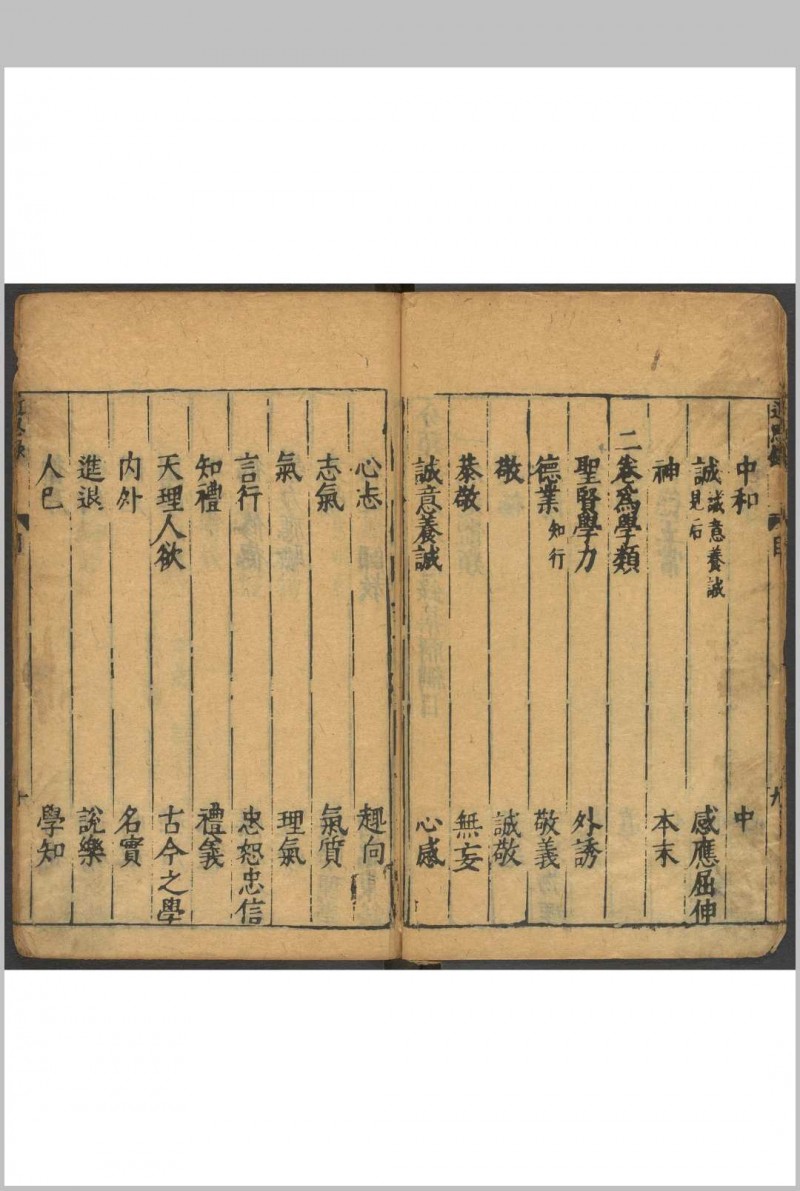 中和　中
誠 誠意養誠見后　感應屈伸
神　本末
二卷爲學類
聖賢學力　外誘
德業 知行　敬義
敬　誠敬
恭敬　無妄
誠意養誠　心感
心志　趣向
志氣　氣質
氣　理氣
言行　忠恕忠信
知禮　禮義
天理人欲　古今之學
內外　名實
進退　說樂
人己　學知
目
九
十